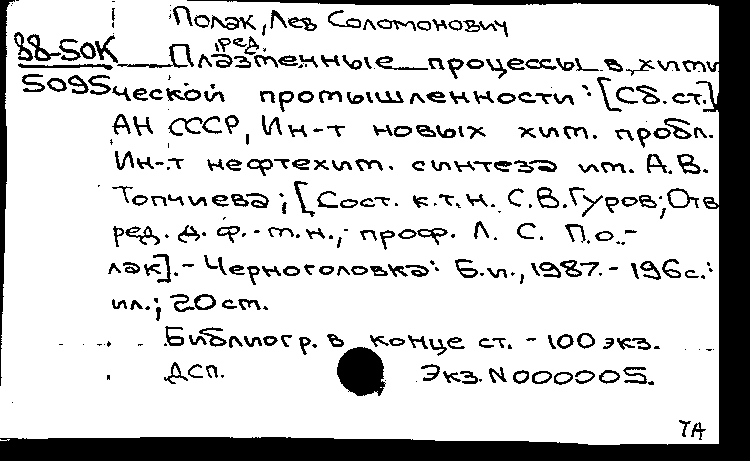 Полак, Лев Соломонович
ред.
88-50К Плазменные процессы в хими
5095 ческой промышленности: [Сб. ст.]
АН СССР, Ин-т новых хим. пробл.
Ин-т нефтехим. синтеза им. А.В.
Топчиева; [Сост. к.т.н. С.В.Гуров; Отв
ред. д. ф.-м.н., проф. Л. С. По-
лак]. - Черноголовка: Б.и., 1987. - 196с.:
ил.; 20 см.
Библиогр. в конце ст. - 100 экз.
ДСП. Экз. N 000005.
7А